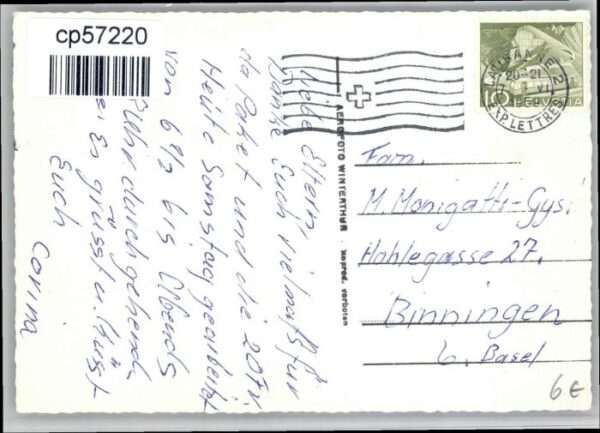 cp57220
Liebe Eltern,
Danke Euch vielmals für
da Paket und die 20 Fr.
Heute Samstag gearbeitet
von 6½ bis Abends
Uhr durchgehend.
Es grüsst u. küsst
Euch
Corina
AEROFOTO WINTERTHUR
Reprod. verboten
LAUSANNE 2
20-21
VI
EXP. LETTRES
HELVETIA
Fam.
M. Monigatti-Gysi
Hohlegasse 27.
Binningen
b. Basel
6€